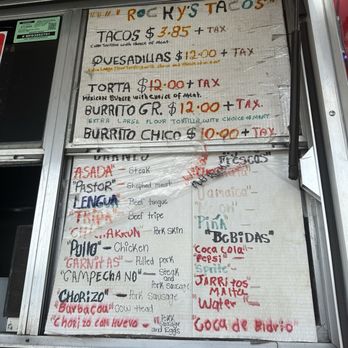 "ROCKY'S TACOS"
TACOS $3.85 + TAX
QUESADILLAS $12.00 + TAX
TORTA $12.00 + TAX
Mexican with choice of meat.
BURRITO GR. $12.00 + TAX.
EXTRA LARGE FLOUR TORTILLA WITH CHOICE OF MEAT
BURRITO CHICO $10.00 + TAX.
ASADA" — Steak
"Pastor" —
LENGUA — Beef tongue
"TRIPA" — Beef tripe
Pork skin
"Pollo" — Chicken
"CARNITAS" — Pulled pork
"CAMPECHANO" — Steak and Pork Sausage
"CHORIZO" — Pork Sausage
"Barbacoa" Cow Head
"Chorizo con Huevo" — Pork Sausage and Eggs
FRESCOS
"Jamaica"
Pink
"BEBIDAS"
Coca Cola
"Pepsi"
Sprite
JARRITOS
MALTA
Water
"Coca de Bidrio"